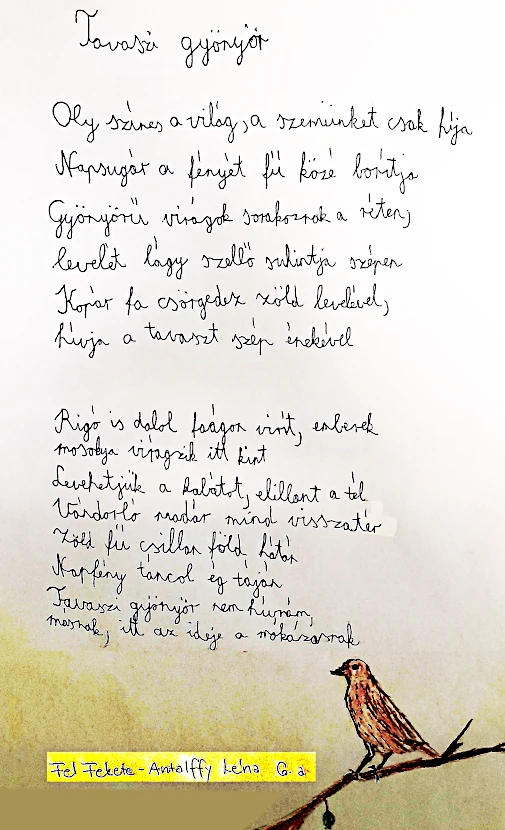 Tavaszi gyönyör
Oly színes a világ, a szemünket csak hívja
Napsugár a fényét fű közé borítja
Gyönyörű virágok sorakoznak a réten,
levelét lágy szellő suhintja szépen
Kopár fa csörgedez zöld levelével,
hívja a tavaszt szép énekével
Rigó is dalol faágon virít, emberek
mosolya virágzik itt kint
Levehetjük a kabátot, elillant a tél
Vándorló madár mind visszatér
Zöld fű csillan föld hátán
Napfény táncol ég táján
Tavaszi gyönyör nem hiúnám,
masnak, itt az ideje a mókázásnak
Fekete-Antalffy Léna 6. a